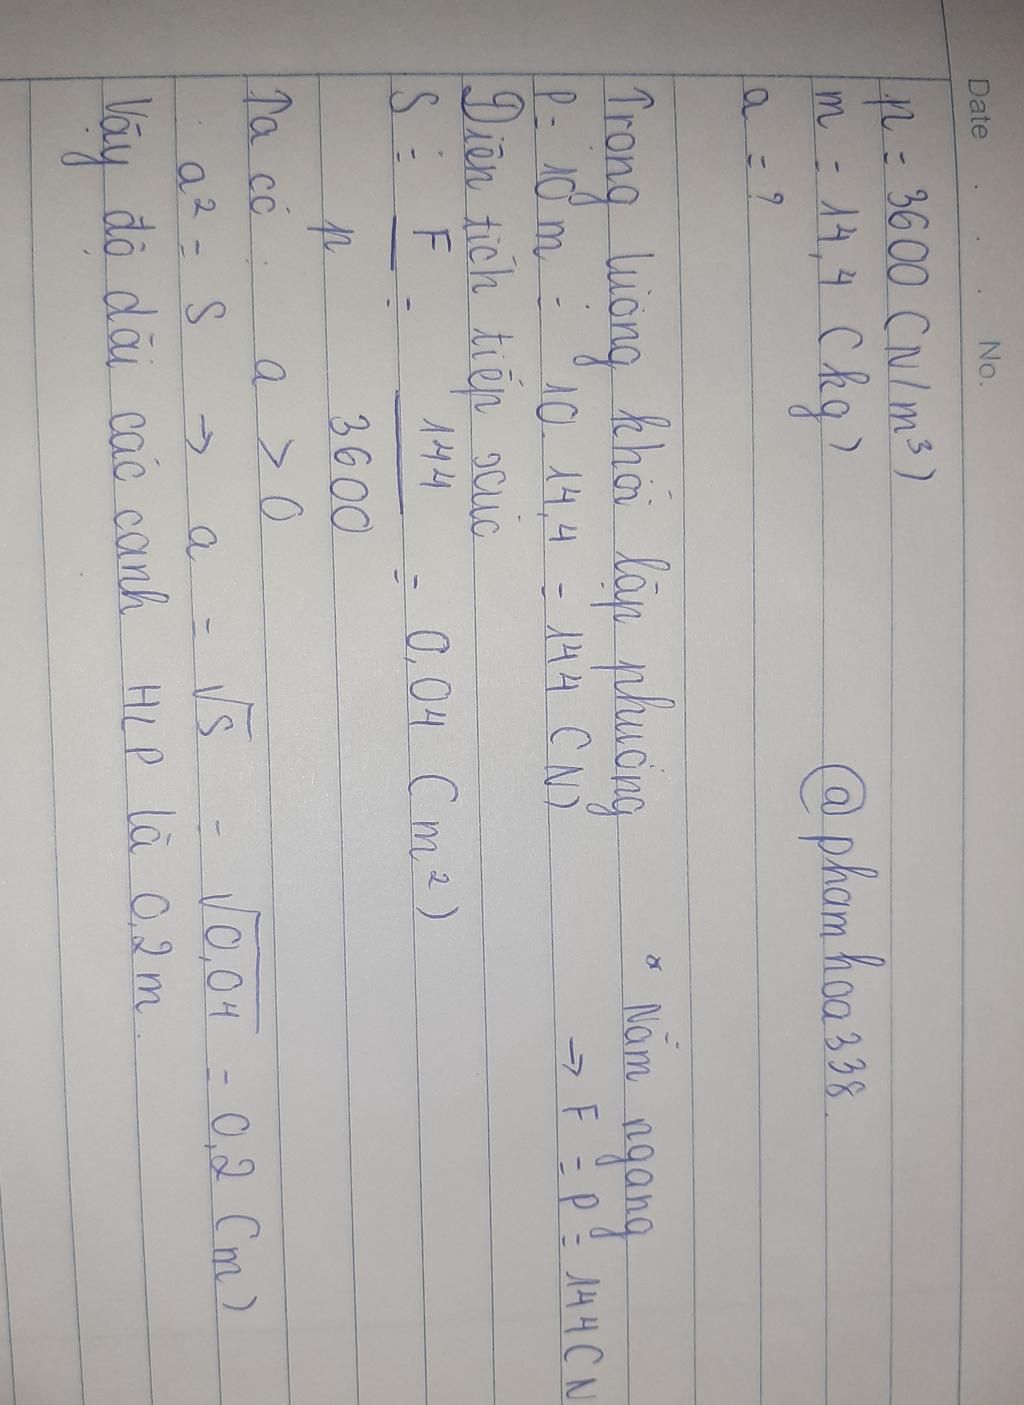 Date No.
p = 3600 (N/m³)
m = 14,4 (kg) @phamhoa338
a = ?
Trọng lượng khối lập phương * Nằm ngang
P = 10m = 10.14,4 = 144 (N) → F = P = 144 (N
Diện tích tiếp xúc
S = F/p = 144/3600 = 0,04 (m²)
Ta có a > 0
a² = S → a = √S = √0,04 = 0,2 (m)
Vậy độ dài các cạnh HLP là 0,2m.